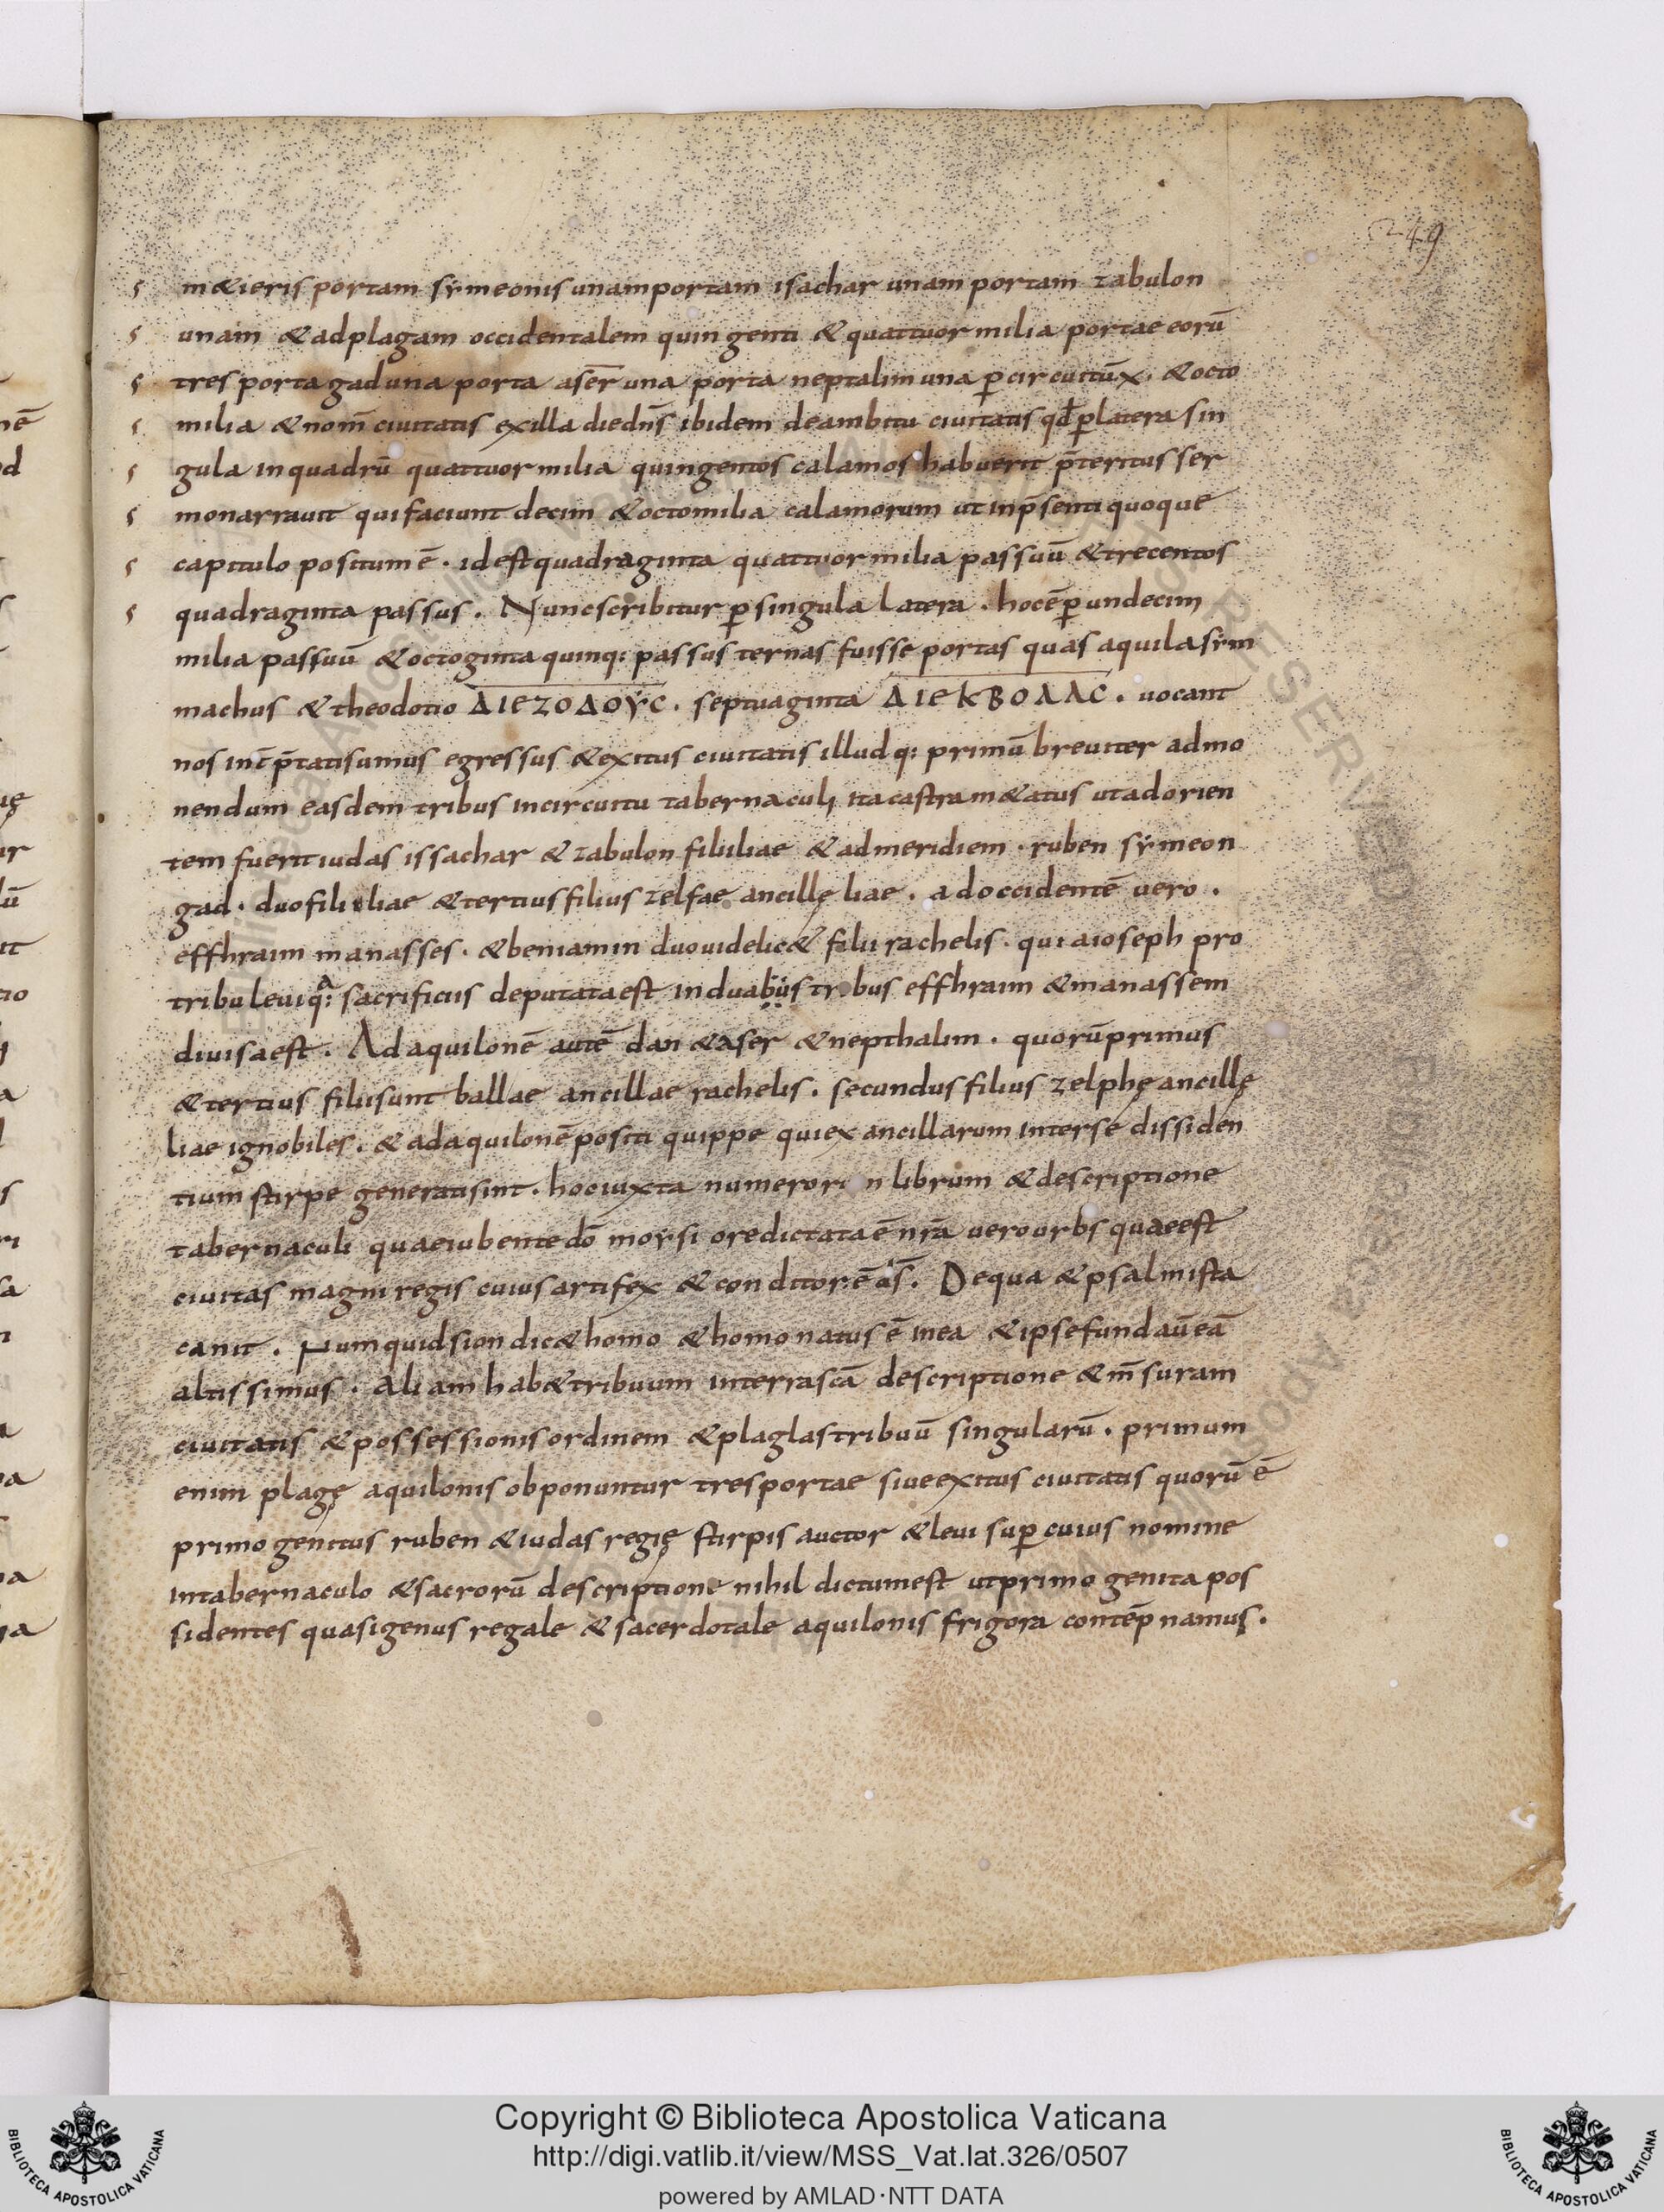 249
m&ieris portam symeonis unam portam isachar unam portam zabulon
unam & ad plagam occidentalem quingenti & quattuor milia portae eorū
tres porta gad una porta asēr una porta neptalim una p̲ circuitū x. & octo
milia & nom̄ ciuitatis ex illa die dn̄s ibidem de ambitu ciuitatis qđ p̲ latera sin
gula in quadrū quattuor milia quingentos calamos habuerit p̄teritus ser
mo narrauit qui faciunt decim & octo milia calamorum ut in p̄senti quoque
capitulo positum ē. id est quadraginta quattuor milia passuū & trecentos
quadraginta passus. Nunc scribitur p̲ singula latera. hoc ē p̲ undecim
milia passuū & octoginta quinq: passus ternas fuisse portas quas aquila sym
machus & theodotio ΔΙΕΖΟΔΟΥC. septuaginta ΔΙΕΚΒΟΛΑC. uocant
nos int̄p̄tati sumus egressus & exitus ciuitatis illud q: primū breuiter admo
nendum easdem tribus in circuitu tabernaculi ita castra m&atus ut ad orien
tem fuerit iudas issachar & zabulon filii liae & ad meridiem. ruben symeon
gad. duo filii liae & tertius filius zelfae ancillę liae. ad occidentē uero.
effhraim manasses. & beniamin duo uidelic& filii rachelis. quia ioseph pro
tribu leui q:a sacrificiis deputata est in duabus tribus effhraim & manassem
diuisa est. Ad aquilonē autē dan & aser & nepthalim. quorū primus
& tertius filii sunt ballae ancillae rachelis. secundus filius zelphę ancillę
liae ignobiles. & ad aquilonē positi quippe qui ex ancillarum inter se dissiden
tium stirpe generati sint. hoc iuxta numeror in librum & descriptione
tabernaculi quae iubente dō moysi ore dictata ē nr̄a uero urbs quae est
ciuitas magni regis cuius artifex & conditor ē ds̄. De qua & psalmista
canit. Numquid sion dic& homo & homo natus ē in ea & ipse fundaū eā
altissimus. Aliam hab& tribuum in terra scā descriptione & m̄suram
ciuitatis & possessionis ordinem & plaglas tribuū singularū. primum
enim plagę aquilonis obponuntur tres portae siue exitus ciuitatis quorū ē
primogenitus ruben & iudas regię stirpis auctor & leui sup̲ cuius nomine
in tabernaculo & sacrorū descriptione nihil dictum est ut primogenita pos
sidentes quasi genus regale & sacerdotale aquilonis frigora contēp namus.
Copyright © Biblioteca Apostolica Vaticana
http://digi.vatlib.it/view/MSS_Vat.lat.326/0507
powered by AMLAD·NTT DATA